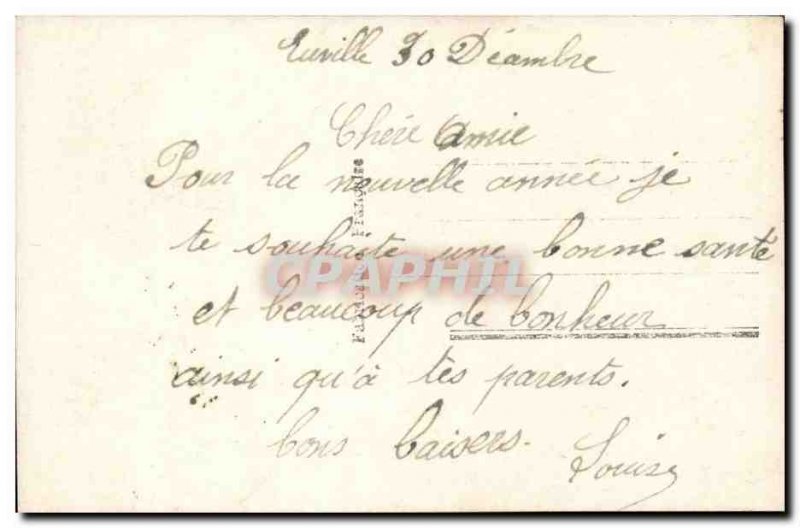 Euville 30 Décembre
Chère amie
Pour la nouvelle année je
te souhaite une bonne santé
et beaucoup de bonheur
ainsi qu'à tes parents.
bons baisers. Louise
Fabrication Française
CPAPHIL